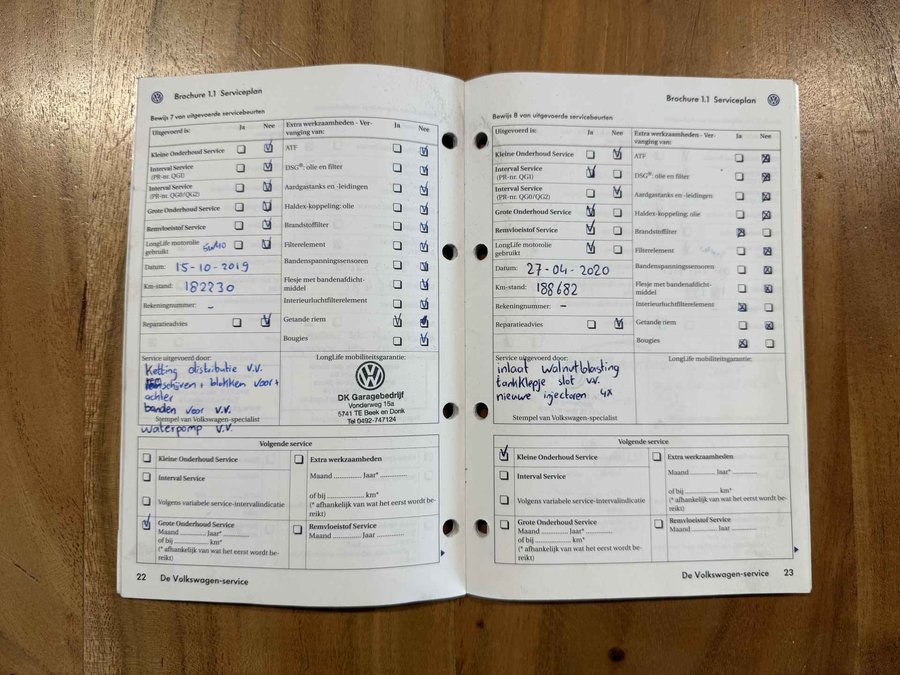 Brochure 1.1 Serviceplan
Bewijs 7 van uitgevoerde servicebeurten
Uitgevoerd is: Ja Nee
Kleine Onderhoud Service
Interval Service
(PR-nr. QG1)
Interval Service
(PR-nr. QG0/QG2)
Grote Onderhoud Service
Remvloeistof Service
LongLife motorolie
gebruikt 5w40
Datum: 15-10-2019
Km-stand: 182230
Rekeningnummer: -
Reparatieadvies
Extra werkzaamheden - Ver-
vanging van: Ja Nee
ATF
DSG®: olie en filter
Aardgastanks en -leidingen
Haldex-koppeling: olie
Brandstoffilter
Filterelement
Bandenspanningssensoren
Flesje met bandenafdicht-
middel
Interieurluchtfilterelement
Getande riem
Bougies
Service uitgevoerd door:
Ketting distributie v.v.
schijven + blokken voor +
achter
banden voor v.v.
Stempel van Volkswagen-specialist
waterpomp v.v.
LongLife mobiliteitsgarantie:
DK Garagebedrijf
Vonderweg 15a
5741 TE Beek en Donk
Tel 0492-747124
Volgende service
Kleine Onderhoud Service
Interval Service
Volgens variabele service-intervalindicatie
Grote Onderhoud Service
Maand ............ Jaar* ............
of bij ............ km*
(* afhankelijk van wat het eerst wordt be-
reikt)
Extra werkzaamheden
Maand ............ Jaar* ............
of bij ............ km*
(* afhankelijk van wat het eerst wordt be-
reikt)
Remvloeistof Service
Maand ............ Jaar ............
22 De Volkswagen-service
Brochure 1.1 Serviceplan
Bewijs 8 van uitgevoerde servicebeurten
Uitgevoerd is: Ja Nee
Kleine Onderhoud Service
Interval Service
(PR-nr. QG1)
Interval Service
(PR-nr. QG0/QG2)
Grote Onderhoud Service
Remvloeistof Service
LongLife motorolie
gebruikt
Datum: 27-04-2020
Km-stand: 188682
Rekeningnummer: -
Reparatieadvies
Extra werkzaamheden - Ver-
vanging van: Ja Nee
ATF
DSG®: olie en filter
Aardgastanks en -leidingen
Haldex-koppeling: olie
Brandstoffilter
Filterelement
Bandenspanningssensoren
Flesje met bandenafdicht-
middel
Interieurluchtfilterelement
Getande riem
Bougies
Service uitgevoerd door:
inlaat walnutblasting
tankklepje slot v.v.
nieuwe injectoren 4x
Stempel van Volkswagen-specialist
LongLife mobiliteitsgarantie:
Volgende service
Kleine Onderhoud Service
Interval Service
Volgens variabele service-intervalindicatie
Grote Onderhoud Service
Maand ............ Jaar* ............
of bij ............ km*
(* afhankelijk van wat het eerst wordt be-
reikt)
Extra werkzaamheden
Maand ............ Jaar* ............
of bij ............ km*
(* afhankelijk van wat het eerst wordt be-
reikt)
Remvloeistof Service
Maand ............ Jaar ............
De Volkswagen-service 23